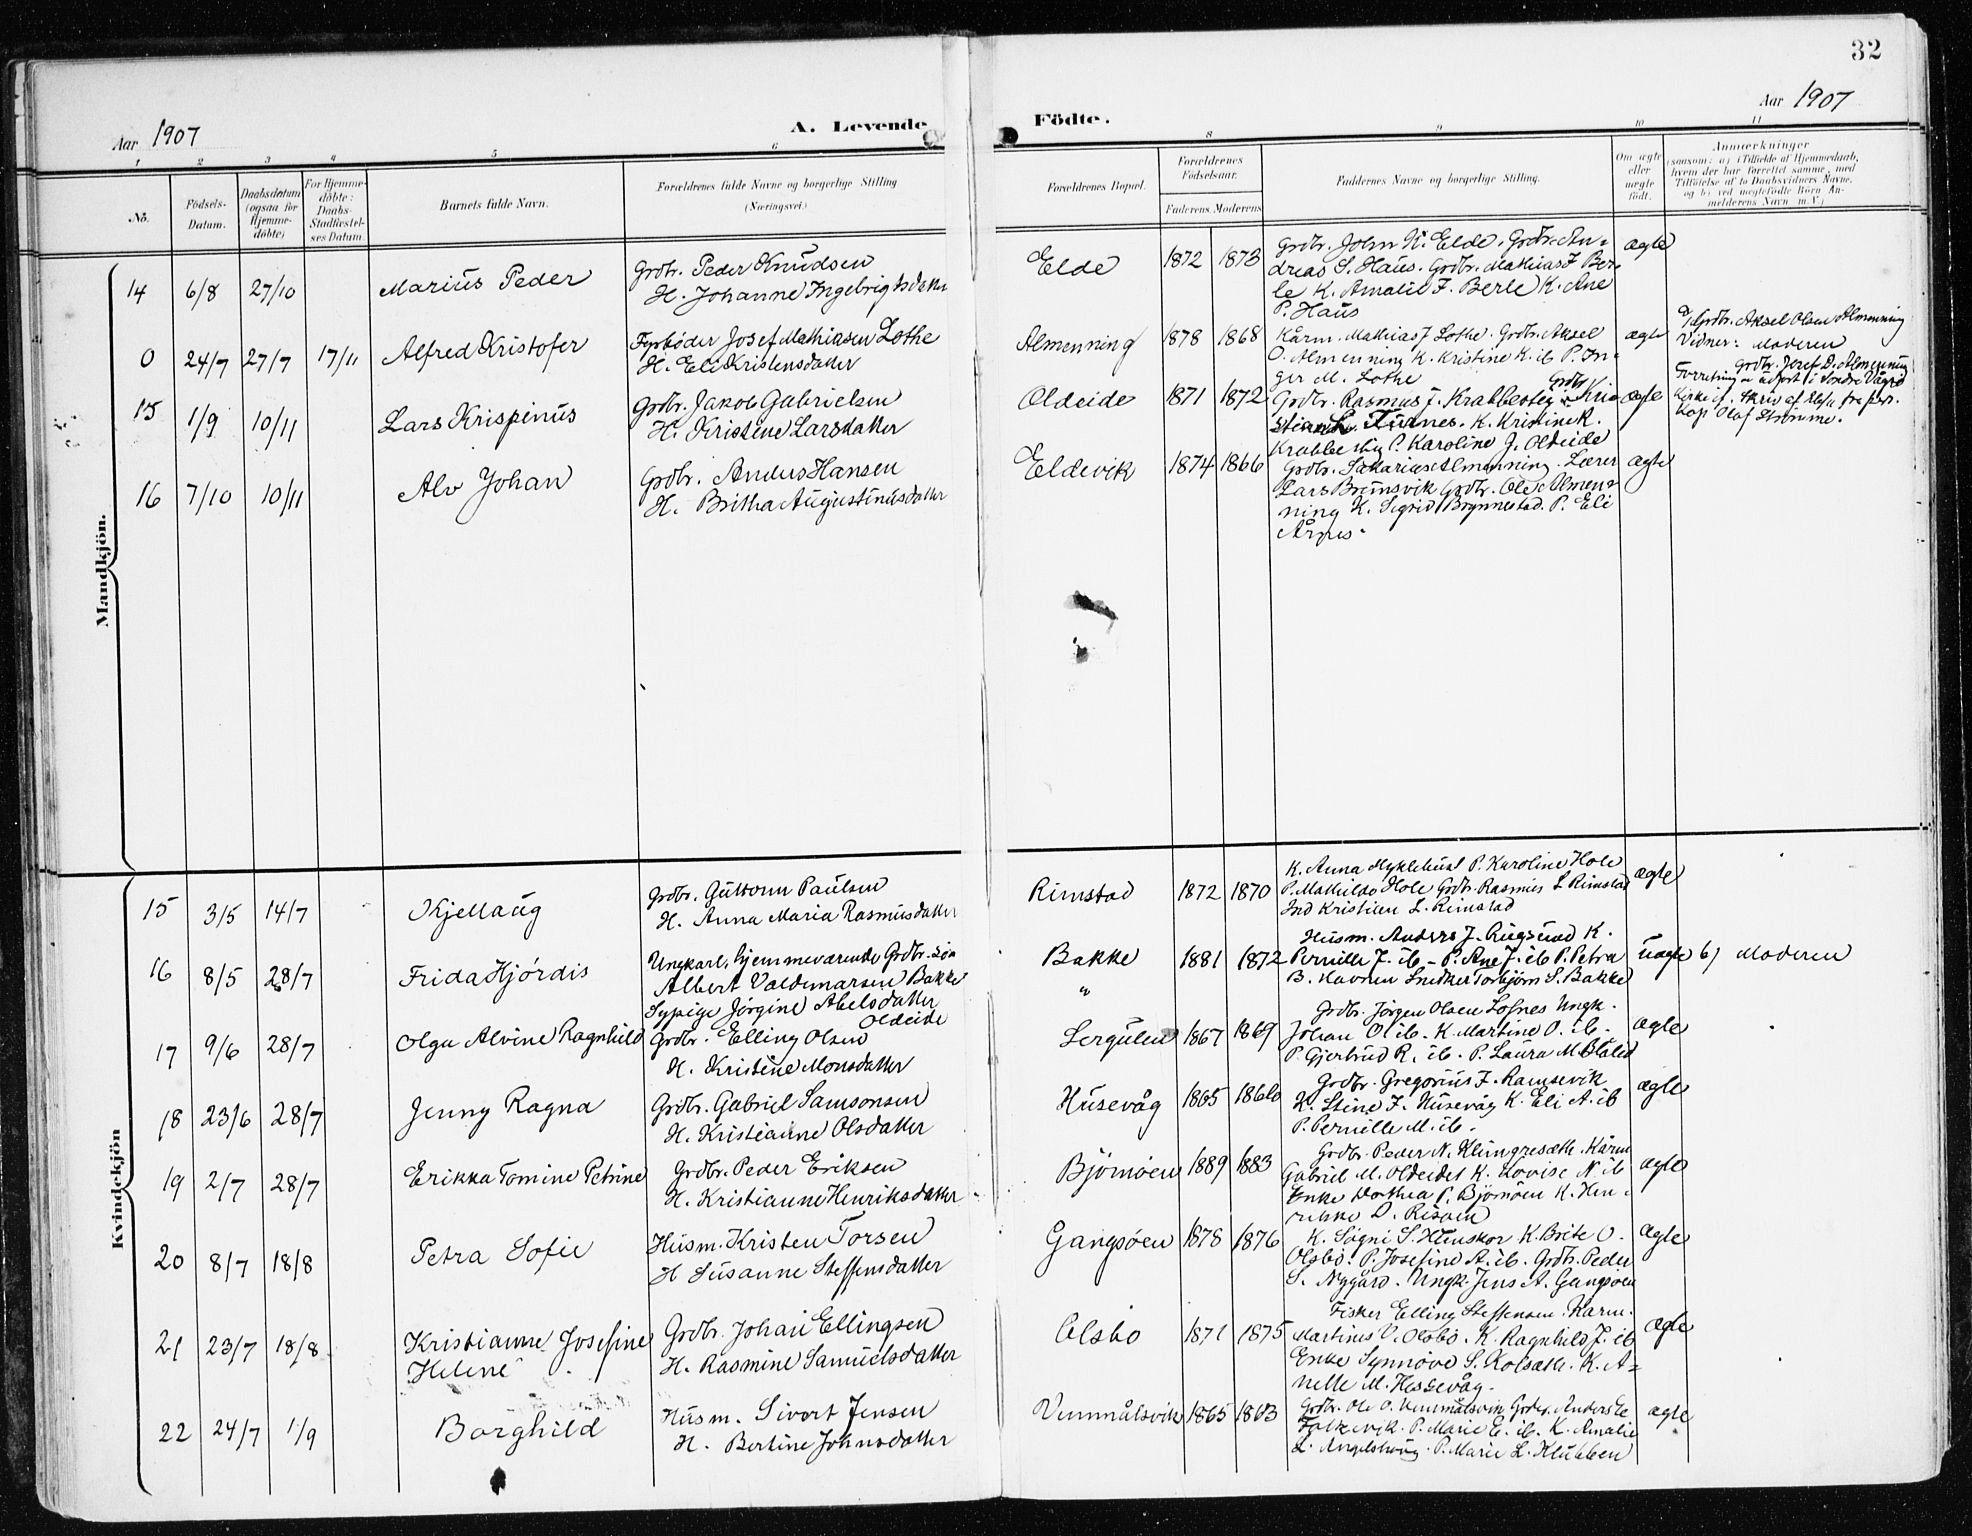 32
Aar 1907
A. Levende
Födte.
Aar 1907
1 2 3 4 5 6
8 9 10 11
No.
Födsels-
Datum.
Daabsdatum
(ogsaa for
Hjemme-
döbte)
For Hjemme-
döbte:
Daabs-
Stadfæstel-
ses Datum
Barnets fulde Navn.
Forældrenes fulde Navne og borgerlige Stilling
(Næringsvei.)
Forældrenes Bopæl.
Forældrenes
Födselsaar.
Faderens. Moderens
Faddernes Navne og borgerlige Stilling.
Om ægte
eller
uægte
födt.
Anmærkninger
(saasom: a) i Tilfælde af Hjemmedaab,
hvem der har forrettet samme, med
Tilföielse af to Daabsvidners Navne,
og b) ved uægtefödte Börn An-
melderens Navn m. V.)
Mandkjön.
14 6/8 27/10 Marius Peder
Grdbr. Peder Knudsen
H. Johanne Ingebrigtsdatter
Elde 1872 1873
Grdbr. John K. Elde. Grdbr. An-
dreas S. Haus. Grdbr. Mathias J. Ber-
le K. Amalie F. Berle K. Ane
P. Haus
ægte
0 24/7 27/7 17/11 Alfred Kristofer
Fyrbøder Josef Mathiasen Lothe
H. Eli Kristensdatter
Almenning 1878 1868
Kårm. Mathias J Lothe. Grdbr. Aksel
O. Almenning K. Kristine K. ib P. In-
ger M. Lothe
ægte
a) Grdbr. Aksel Olsen Almenning
Vidner: Moderen
Grdbr. Josef D. Almenning
Forretning udført i Søndre Vågsø
Kirke
Kap. Olaf Strømme.
15 1/9 10/11 Lars Krispinus
Grdbr. Jakob Gabrielsen
H. Kristine Larsdatter
Oldeide 1871 1872
Grdbr. Rasmus J. Krabbestig Grdbr. Kri-
stian L. Furnes. K. Kristine K.
Krabbestig P. Karoline J. Oldeide
ægte
16 7/10 10/11 Alv Johan
Grdbr. Anders Hansen
H. Britha Augustinusdatter
Eldevik 1874 1866
Grdbr. Sakarias Almenning. Lærer
Lars Bremsvik Grdbr. Ole Almen-
ning K. Sigrid Brynnestad. P. Eli
Årnes.
ægte
Kvindekjön
15 3/5 14/7 Kjellaug
Grdbr. Guttorm Paulsen
H. Anna Maria Rasmusdatter
Rimstad 1872 1870
K. Anna Myklebust P. Karoline Hole
P. Mathilde Hole Grdbr. Rasmus L Rimstad
Ind Kristian L. Rimstad
ægte
16 8/5 28/7 Frida Hjördis
Ungkarl, hjemmeværende Grdbr. søn
Albert Valdemarsen Bakke
Sypige Jørgine Abelsdatter
Oldeide
Bakke 1881 1872
"
Husm. Anders J. Rugsund K.
Pernille J. ib - P. Ane J. ib P. Petra
B. Havnen Snedker Torbjørn S. Bakke
uægte b) Moderen
17 9/6 28/7 Olga Alvine Ragnhild
Grdbr. Elling Olsen
H. Kristine Monsdatter
Sergulen 1867 1869
Grdbr. Jørgen Olsen Lofnes Ungk.
Johan O. ib. K. Martine O. ib.
P. Gjertrud R. ib. P. Laura M. Blålid
ægte
18 23/6 28/7 Jenny Ragna
Grdbr. Gabriel Samsonsen
H. Kristianne Olsdatter
Husevåg 1865 1866
Grdbr. Gregorius J. Ramsevik
K. Stine J. Husevåg K. Eli A. ib
P. Pernille M. ib.
ægte
19 2/7 28/7 Erikka Tomine Petrine
Grdbr. Peder Eriksen
H. Kristianne Henriksdatter
Bjørnøen 1889 1883
Grdbr. Peder N. Klungresæth. Kårm
Gabriel M. Oldeidet K. Lovise N ib
Enke Dorthea P. Bjørnøen K. Hen-
rikke D. Risøen
ægte
20 8/7 18/8 Petra Sofie
Husm. Kristen Torsen
H Susanne Steffensdatter
Gangsøen 1878 1876
K. Søgni S. Hunskor K. Brite O.
Olsbø. P. Josefine A. ib. Grdbr. Peder
S. Nygård. Ungk. Jens A. Gangsøen
ægte
21 23/7 18/8 Kristianne Josefine
Helene
Grdbr. Johan Ellingsen
H. Rasmine Samuelsdatter
Olsbø 1871 1875
Fisker Elling Steffensen. Kårm.
Martinus V. Olsbø. K. Ragnhild J. ib
Enke Synnøve S. Kolsæth. K. A-
nette M. Hessevåg.
ægte
22 24/7 1/9 Borghild
Husm. Sivert Jensen
H. Bertine Johnsdatter
Vemmålsvik 1865 1863
Grdbr. Ole O. Vemmålsvik Grdbr. Anders E
Falkevik. P. Marie E. ib. K. Amalie
L. Angelshaug. P. Marie L. Klubben
ægte